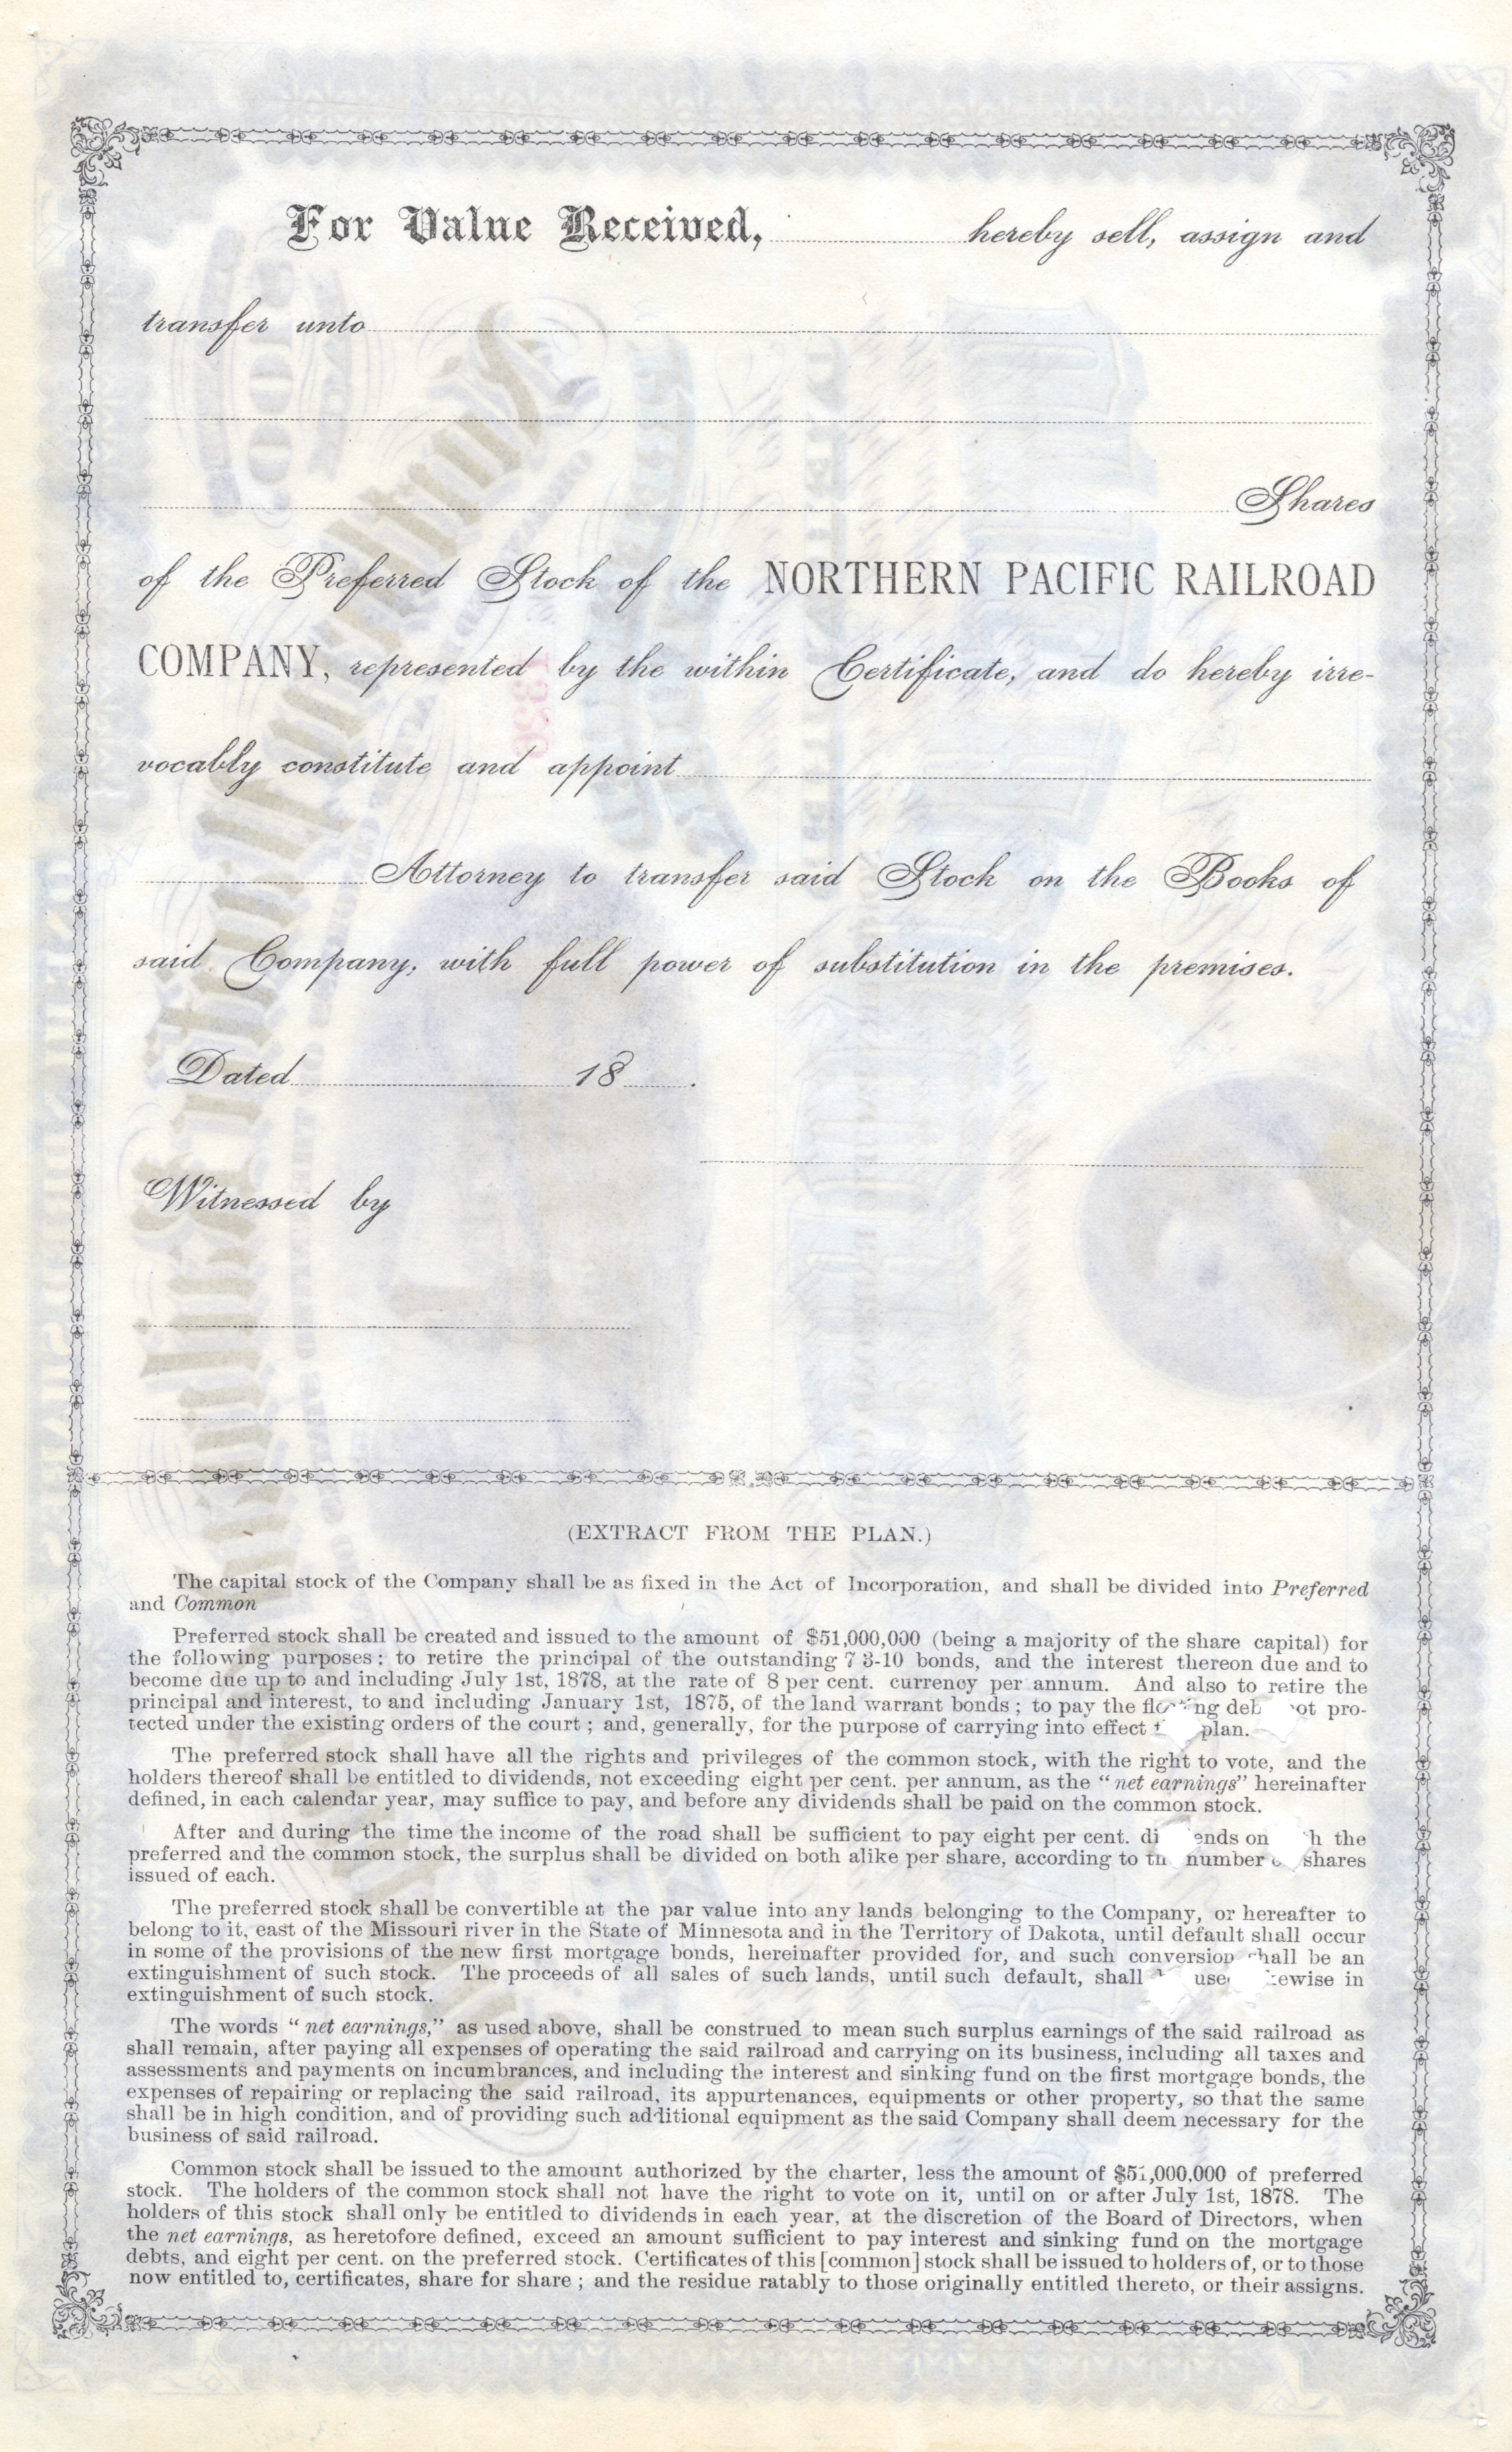 For Value Received, hereby sell, assign and
transfer unto
Shares
of the Preferred Stock of the NORTHERN PACIFIC RAILROAD
COMPANY, represented by the within Certificate, and do hereby irre-
vocably constitute and appoint
Attorney to transfer said Stock on the Books of
said Company, with full power of substitution in the premises.
Dated 18 .
Witnessed by
(EXTRACT FROM THE PLAN.)
The capital stock of the Company shall be as fixed in the Act of Incorporation, and shall be divided into Preferred
and Common
Preferred stock shall be created and issued to the amount of $51,000,000 (being a majority of the share capital) for
the following purposes; to retire the principal of the outstanding 7 3-10 bonds, and the interest thereon due and to
become due up to and including July 1st, 1878, at the rate of 8 per cent. currency per annum. And also to retire the
principal and interest, to and including January 1st, 1875, of the land warrant bonds; to pay the pro-
tected under the existing orders of the court; and, generally, for the purpose of carrying into effect plan.
The preferred stock shall have all the rights and privileges of the common stock, with the right to vote, and the
holders thereof shall be entitled to dividends, not exceeding eight per cent. per annum, as the "net earnings" hereinafter
defined, in each calendar year, may suffice to pay, and before any dividends shall be paid on the common stock.
After and during the time the income of the road shall be sufficient to pay eight per cent. on the
preferred and the common stock, the surplus shall be divided on both alike per share, according to number shares
issued of each.
The preferred stock shall be convertible at the par value into any lands belonging to the Company, or hereafter to
belong to it, east of the Missouri river in the State of Minnesota and in the Territory of Dakota, until default shall occur
in some of the provisions of the new first mortgage bonds, hereinafter provided for, and such conversion shall be an
extinguishment of such stock. The proceeds of all sales of such lands, until such default, shall in
extinguishment of such stock.
The words "net earnings," as used above, shall be construed to mean such surplus earnings of the said railroad as
shall remain, after paying all expenses of operating the said railroad and carrying on its business, including all taxes and
assessments and payments on incumbrances, and including the interest and sinking fund on the first mortgage bonds, the
expenses of repairing or replacing the said railroad, its appurtenances, equipments or other property, so that the same
shall be in high condition, and of providing such additional equipment as the said Company shall deem necessary for the
business of said railroad.
Common stock shall be issued to the amount authorized by the charter, less the amount of $51,000,000 of preferred
stock. The holders of the common stock shall not have the right to vote on it, until on or after July 1st, 1878. The
holders of this stock shall only be entitled to dividends in each year, at the discretion of the Board of Directors, when
the net earnings, as heretofore defined, exceed an amount sufficient to pay interest and sinking fund on the mortgage
debts, and eight per cent. on the preferred stock. Certificates of this [common] stock shall be issued to holders of, or to those
now entitled to, certificates, share for share; and the residue ratably to those originally entitled thereto, or their assigns.